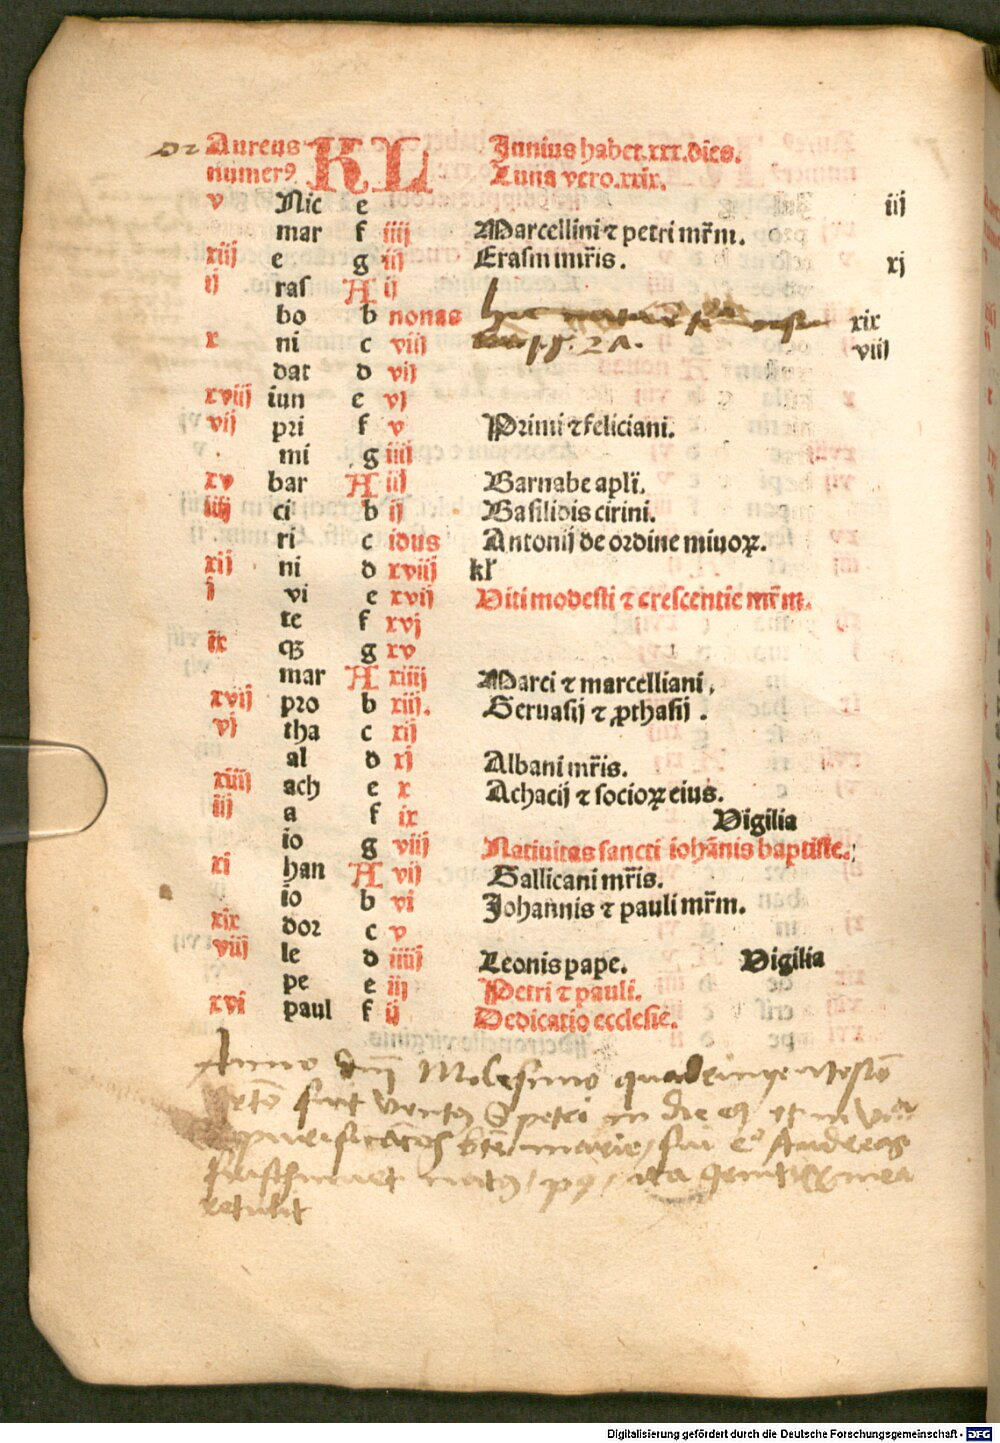 Aureus KL Junius habet .xxx. dies.
numerꝰ Luna vero .xxix.
v Nic e iij
mar f iiij Marcellini ⁊ petri mr̄m.
xiij e g iij Erasmi mr̄is. xj
ij ras A ij
bo b nonas xix
x ni c viij 2A. viij
dat d vij
xviij iun e vj
vij pri f v Primi ⁊ feliciani.
mi g iiij
xv bar A iij Barnabe apl̄i.
iiij ci b ij Basilidis cirini.
ri c idus Antonij de ordine minoꝝ.
xij ni d xviij kl̄
i vi e xvij Viti modesti ⁊ crescentie mr̄m.
te f xvj
ix q̄ g xv
mar A xiiij Marci ⁊ marcelliani.
xvij pro b xiij. Geruasij ⁊ ꝓthasij.
vj tha c xij
al d xj Albani mr̄is.
xiiij ach e x Achacij ⁊ socioꝝ eius.
iij a f ix Vigilia
io g viij Natiuitas sancti ioha̅nis baptiste.
xi han A vij Gallicani mr̄is.
io b vi Johannis ⁊ pauli mr̄m.
xix dor c v
viij le d iiij Leonis pape. Vigilia
pe e iij Petri ⁊ pauli.
xvi paul f ij Dedicatio ecclesie.
Anno dn̄i Molesimo quadringentesimo
petri in die
purificac̄ōis bt̄e marie, Andreas
natꝰ, ita genitrix mea
retulit
Digitalisierung gefördert durch die Deutsche Forschungsgemeinschaft - DFG